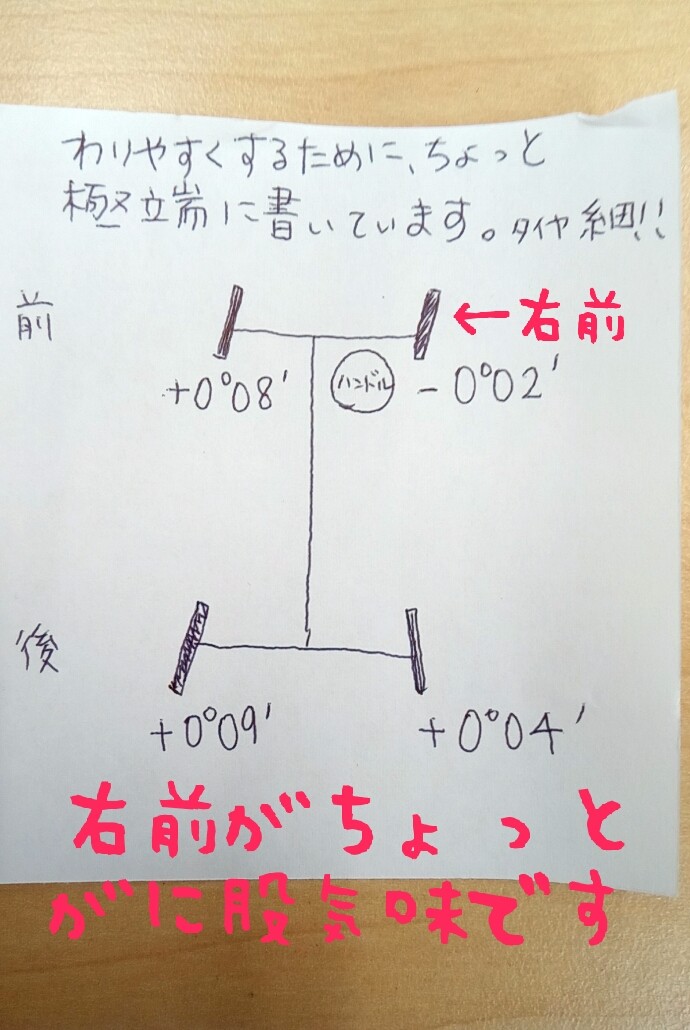 わりやすくするために、ちょっと
極立端に書いています。タイヤ細!!
前
←右前
+0°08′
ハンドル
-0°02′
後
+0°09′
+0°04′
右前がちょっと
がに股気味です